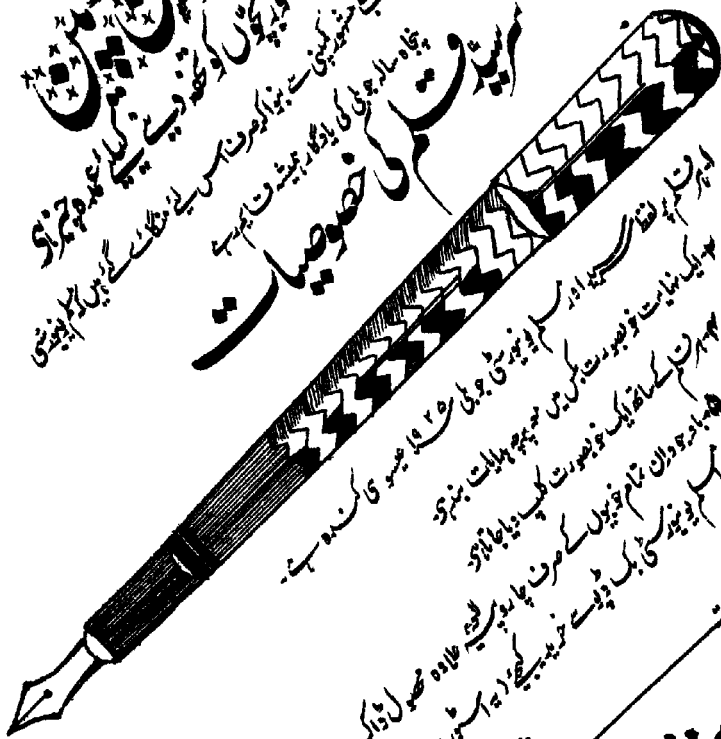 بچوں کو تحفہ دینے کیلئے عمدہ چیز ہے
مشہور کمپنی سے بنواکر صرف اس لئے منگائے گئے ہیں کہ مسلم یونیورسٹی
پنجاہ سالہ جوبلی کی یادگار ہمیشہ قایم رہے
سرسید قلم کی خصوصیات
ہر قلم پر لفظ سرسید اور مسلم یونیورسٹی جوبلی ۱۹۲۵ عیسوی کندہ ہے۔
ایک نہایت خوبصورت بکس میں معہ پرچہ ہدایات بند ہے
ہر قلم کے ساتھ ایک خوبصورت کلپ دیا جاتا ہے
باوجود ان تمام خوبیوں کے صرف چار روپیہ علاوہ محصول ڈاک
مسلم یونیورسٹی بک ڈپو سے خریدیئے